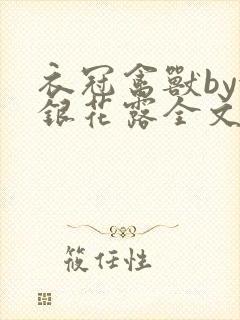 衣冠禽獸by
銀花露全文
筱任性